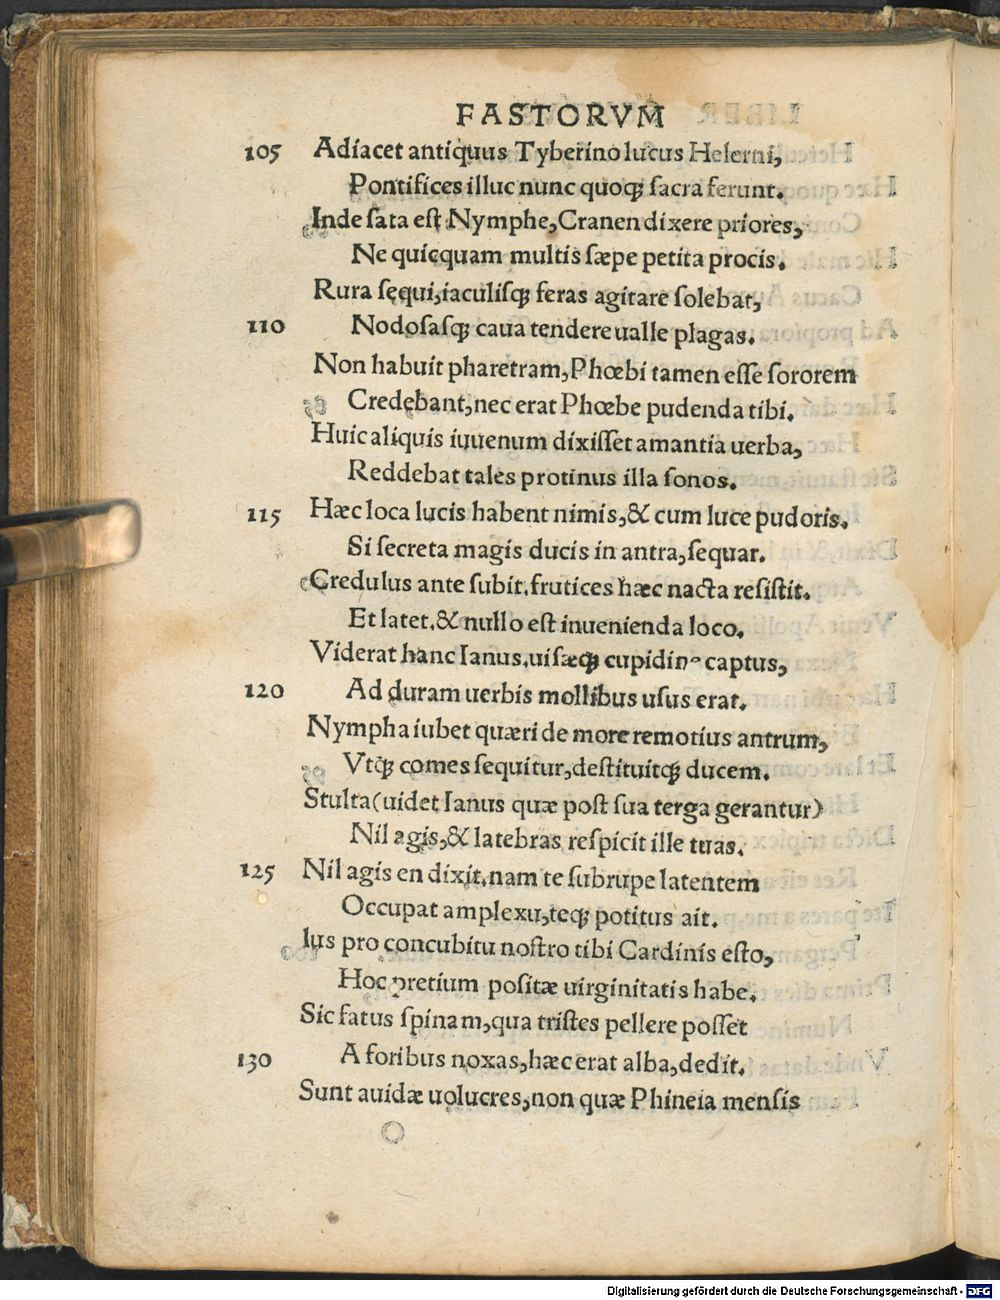 FASTORVM
105 Adiacet antiquus Tyberino lucus Helerni,
Pontifices illuc nunc quoqꝫ sacra ferunt.
Inde sata est Nymphe, Cranen dixere priores,
Ne quicquam multis sæpe petita procis.
Rura sequi, iaculisqꝫ feras agitare solebat,
110 Nodosasqꝫ caua tendere ualle plagas.
Non habuit pharetram, Phœbi tamen esse sororem
Credebant, nec erat Phœbe pudenda tibi.
Huic aliquis iuuenum dixisset amantia uerba,
Reddebat tales protinus illa sonos.
115 Hæc loca lucis habent nimis, & cum luce pudoris.
Si secreta magis ducis in antra, sequar.
Credulus ante subit. frutices hæc nacta resistit.
Et latet. & nullo est inuenienda loco.
Viderat hanc Ianus. uisæqꝫ cupidine captus,
120 Ad duram uerbis mollibus usus erat.
Nympha iubet quæri de more remotius antrum,
Vtqꝫ comes sequitur, destituitqꝫ ducem.
Stulta (uidet Ianus quæ post sua terga gerantur)
Nil agis, & latebras respicit ille tuas.
125 Nil agis en dixit. nam te sub rupe latentem
Occupat amplexu, teqꝫ potitus ait.
Ius pro concubitu nostro tibi Cardinis esto,
Hoc pretium positæ uirginitatis habe.
Sic fatus spinam, qua tristes pellere posset
130 A foribus noxas, hæc erat alba, dedit.
Sunt auidæ uolucres, non quæ Phineia mensis
Digitalisierung gefördert durch die Deutsche Forschungsgemeinschaft - DFG